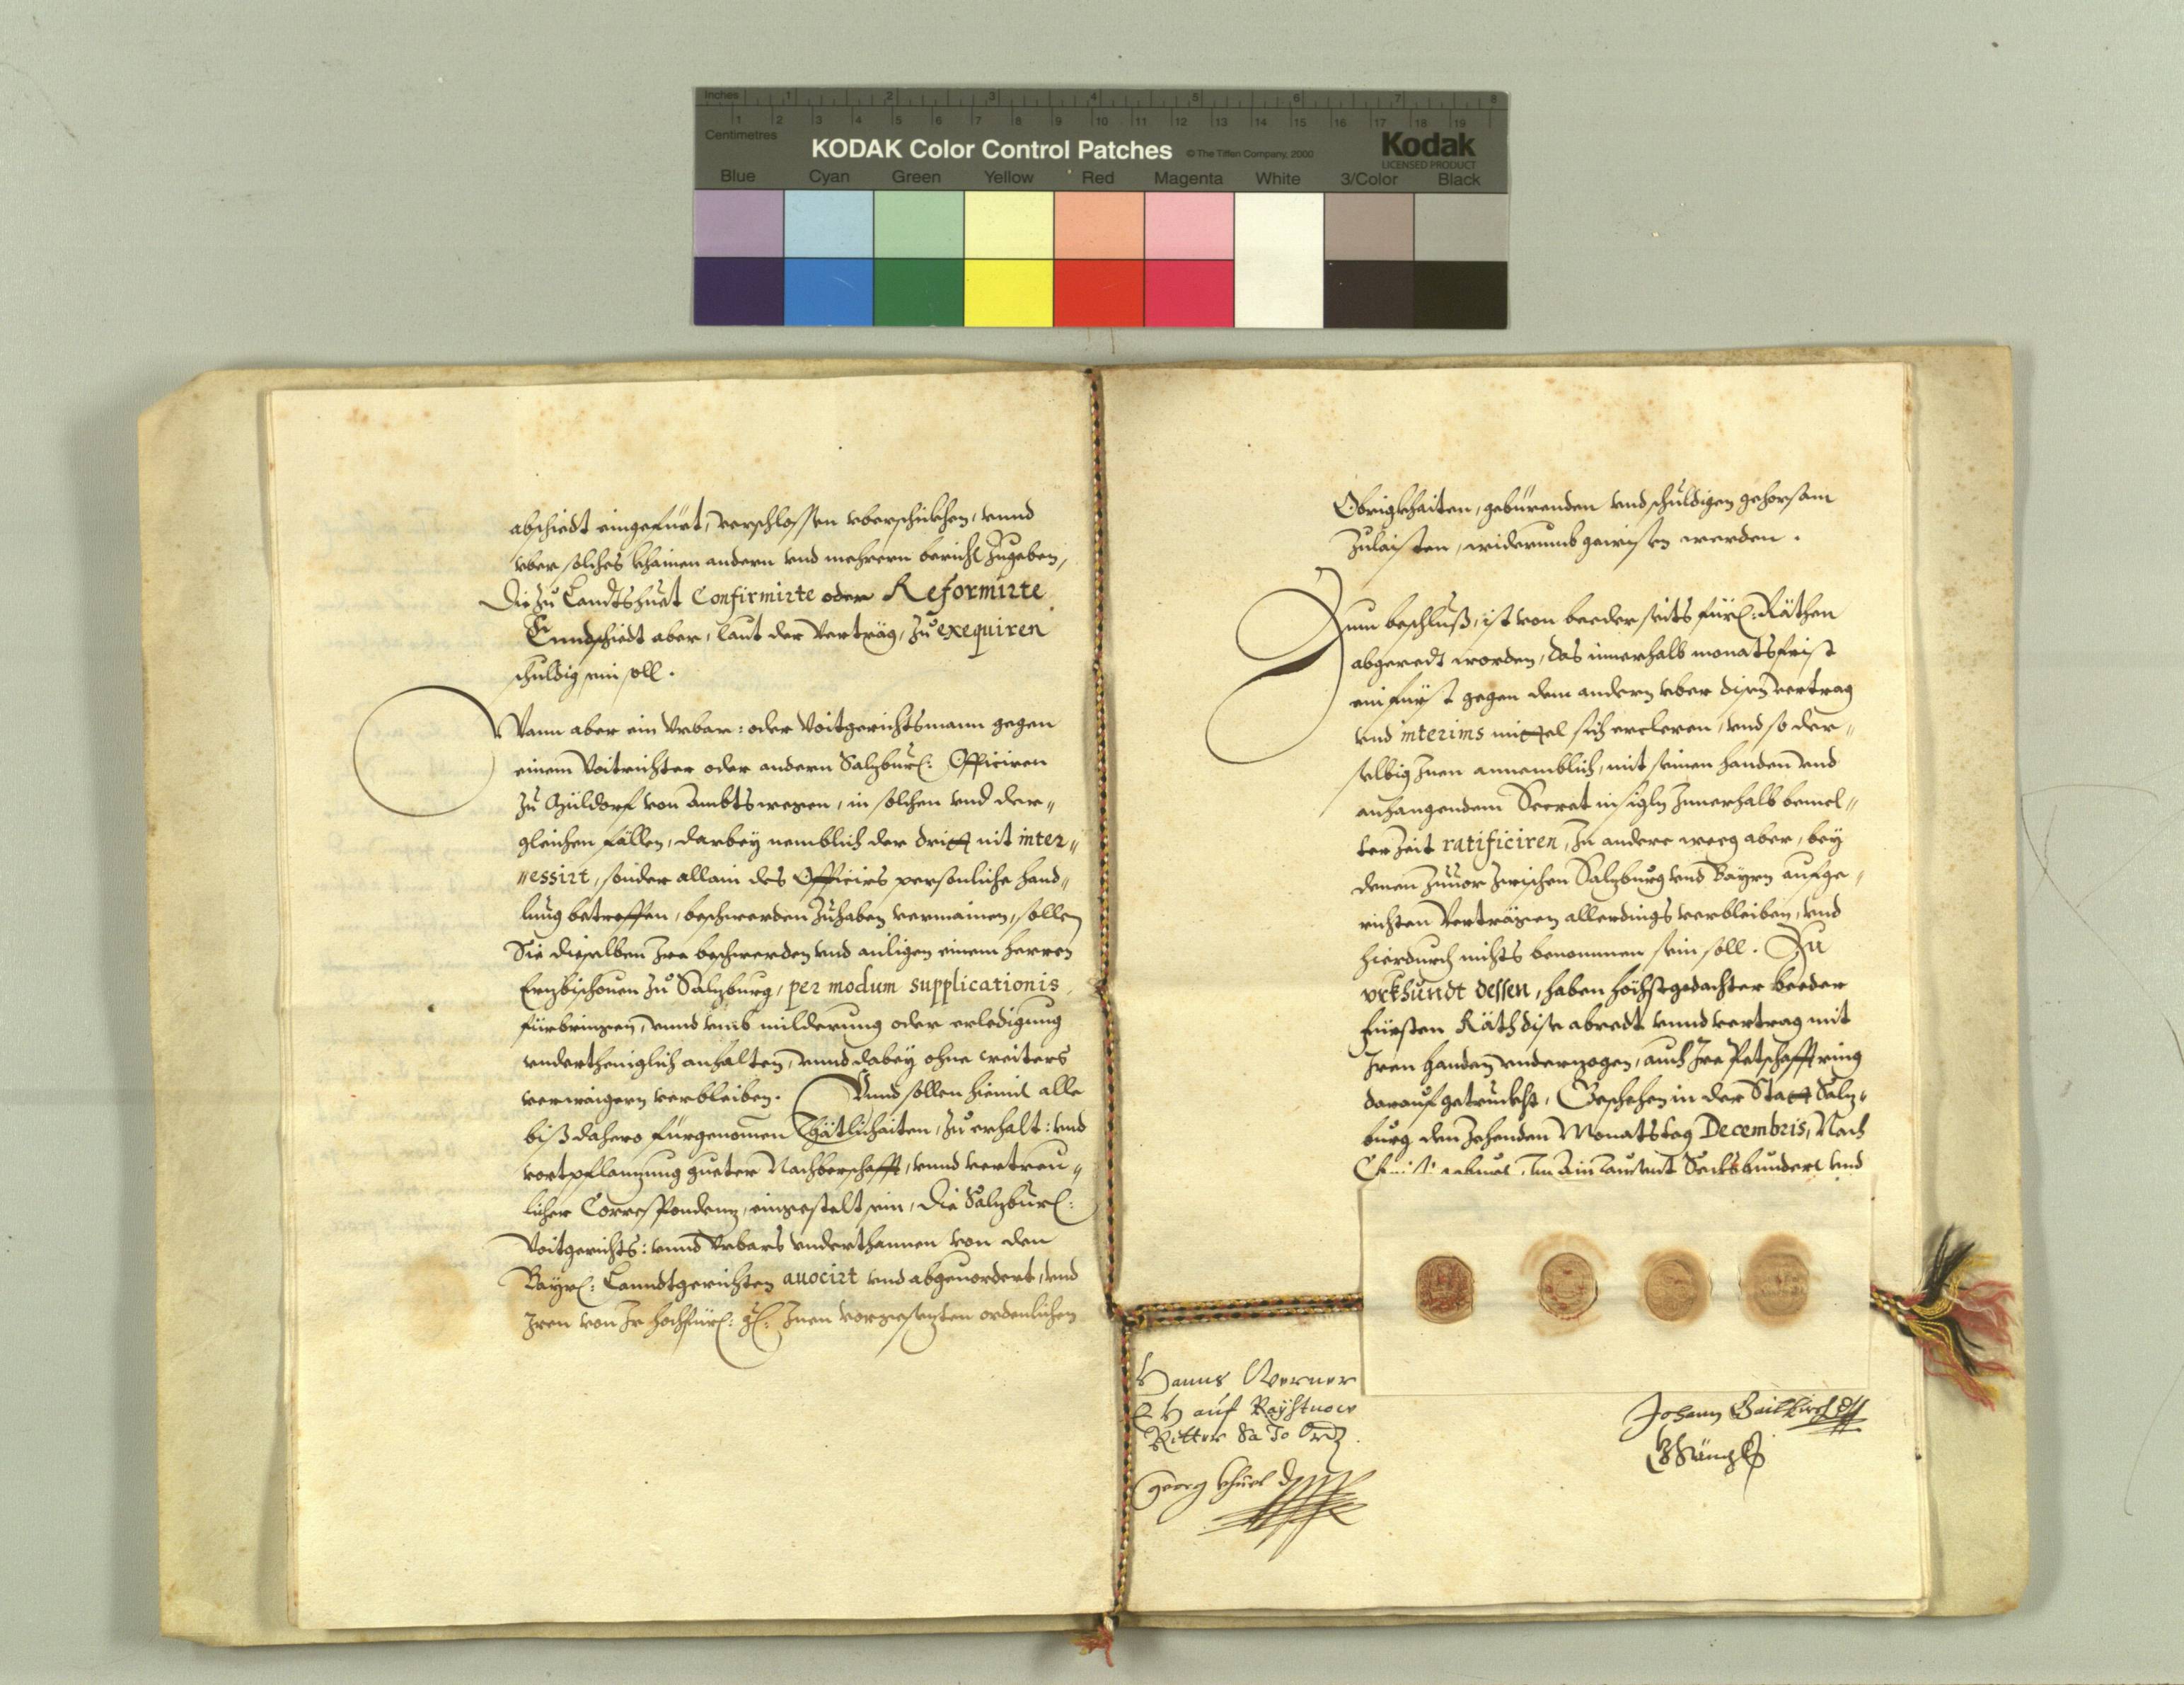 Inches 1 2 3 4 5 6 7 8
1 2 3 4 5 6 7 8 9 10 11 12 13 14 15 16 17 18 19
Centimetres
KODAK Color Control Patches © The Tiffen Company, 2000 Kodak
LICENSED PRODUCT
Blue Cyan Green Yellow Red Magenta White 3/Color Black
abschiedt eingefürt, verschlossen vberschikhen, vnnd
vber solches khainen andern vnd mehrern bericht zugeben,
Die zu Landtshuet Confirmirte oder Reformirte
Enndschiedt aber, laut der Verträg, zu exequiren
schuldig sein soll.
Wann aber ein Vrbar: oder Voitgerichtsmann gegen
einem Voitrichter oder andern Salzburg: Officiren
zu Müldorf von Ambts wegen, in solchen vnd der„
gleichen fällen, darbey nemblich der dritt nit inter„
„essirt, sonder allain des Officirs persönliche hand„
lung betroffen, beschwerden zuhaben vermainen, sollen
Sie dieselben Ire beschwerden vnd anligen einem Herren
Erzbischouen zu Salzburg, per modum supplicationis
fürbringen, vnnd vmb milderung oder erledigung
vnderthenigclich anhalten, vnnd dabey ohne weiters
verwaigern verbleiben. Vnnd sollen hiemit alle
biß dahero fürgenomen Thätlichaiten, zu erhalt: vnd
vortpflanzung gueter Nachberschafft, vnnd vertreu„
licher Correspondenz, eingestelt sein, Die Salzburg:
Voitgerichts: vnnd Vrbars vnderthannen von den
Bayr: Lanndtgerichten auocirt vnd abgeuordert, vnd
Iren von Ir hochfür: gl: Inen vorgesezten ordenlichen
Obrigkhaiten, gebürenden vnd schuldigen gehorsam
zulaisten, widerumb gewisen werden.
Zum beschluß, ist von beederseits für: Räthen
abgeredt worden, das innerhalb monatsfrist
ein fürst gegen dem andern vber disen vertrag
vnd interims mittel sich ercleren, vnd so der„
selbig Inen annemblich, mit seinen handen vnd
anhangendem Secret insigln Innerhalb bemel„
ter Zeit ratificiren, In andere weeg aber, bey
denen zuuor zwischen Salzburg vnd Bayrn aufge„
richten Verträgen allerdings verbleiben, vnd
hierdurch nichts benommen sein soll. Zu
vrkhundt dessen, haben höchstgedachter beeder
fürsten Räth dise abredt vnnd vertrag mit
Iren handen vnderzogen, auch Ire Petschafftring
darauf getruckht, Geschehen in der Statt Salz„
burg den zehenden Monatstag Decembris, Nach
Christi geburt, Im Ain Tausent Sechshundert vnd
Hanns Werner
auf Raythnow
Ritter
Georg
Johann Gailkircher